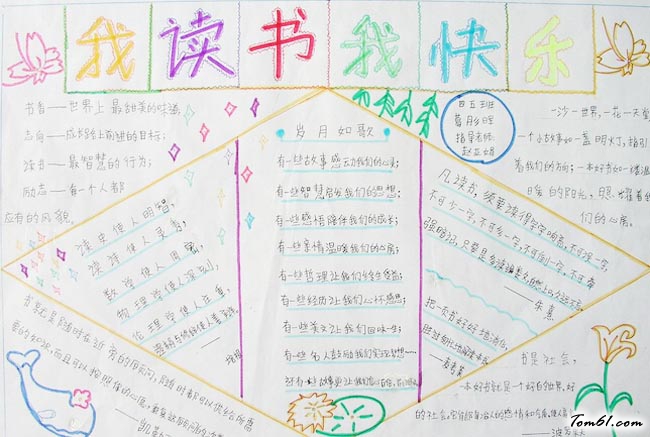 我读书我快乐
书香——世界上最甜美的味道
志向——成长路上前进的目标;
读书——最智慧的行为;
励志——每一个人都
应有的风貌
岁月如歌
有一些故事感动我们的心灵;
有一些智慧启发我们的思想;
有一些感悟陪伴我们的成长;
有一些亲情温暖我们的心房;
有一些哲理让我们终生受益;
有一些经历让我们心怀感恩;
有一些美文让我们回味一生;
有一些名人鼓励我们实现梦想……
四五班
指导老师:
一沙一世界,一花一天堂
一个小故事如一盏明灯,指引
着我们的方向;一本好书如一缕温
暖的阳光,照耀着我
们的心房。
读史使人明智,
读诗使人灵秀,
数学使人周密,
物理学使人深刻,
伦理学使人庄重,
逻辑与修辞使人善辩。
——培根
凡读书,须要读得字字响亮,不可误一字,
不可少一字,不可多一字,不可倒一字,不可牵
强暗记,只是要多诵遍数,自然上口,久远不忘。
——朱熹
书就是随时在近旁的顾问,随时都可以供给你所需
要的知识,而且可以按照你的心愿,重复这顾问的次数
书是社会,
一本好书就是一个好的世界,好
的社会。它能陶冶人的感情和气质,使人高尚
——波罗果夫
Tom61.com